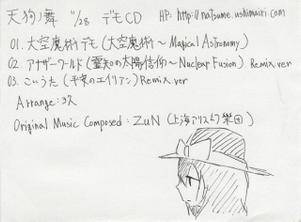 天狗ノ舞 11/28 デモCD HP: http://natsume.ushimairi.com
01. 大空魔術デモ (大空魔術～Magical Astronomy)
02. アナザーワールド (霊知の太陽信仰～Nuclear Fusion) Remix.ver
03. こいうた (平安のエイリアン) Remix.ver
Arrange: ス
Original Music Composed: ZUN (上海アリス幻樂団)